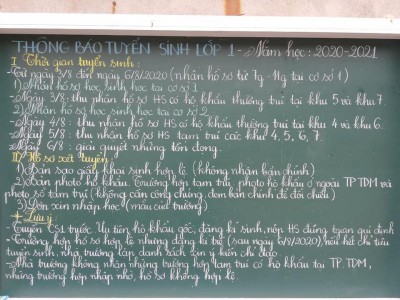 THÔNG BÁO TUYỂN SINH LỚP 1 - Năm học: 2020-2021
I Thời gian tuyển sinh:
- Từ ngày 3/8 đến ngày 6/8/2020 (nhận hồ sơ từ 7g - 11g tại cơ sở 1)
1) Nhận hồ sơ học sinh học tại cơ sở 1
- Ngày 3/8: thu nhận hồ sơ HS có hộ khẩu thường trú tại khu 5 và khu 7.
2) Nhận hồ sơ học sinh học tại cơ sở 2
- Ngày 4/8: thu nhận hồ sơ HS có hộ khẩu thường trú tại khu 4 và khu 6.
- Ngày 5/8: thu nhận hồ sơ HS tạm trú các khu 4, 5, 6, 7.
- Ngày 6/8: giải quyết những tồn đọng.
II) Hồ sơ xét tuyển
1) Bản sao giấy khai sinh hợp lệ (không nhận bản chính)
2) Bản photo hộ khẩu. Trường hợp tạm trú photo hộ khẩu ở ngoài TP TDM và
photo sổ tạm trú (không cần công chứng, đem bản chính để đối chiếu)
3) Đơn xin nhập học (mẫu của trường)
+ Lưu ý:
- Tuyển CS1 trước. Ưu tiên hộ khẩu gốc, đăng kí sinh, nộp HS đúng thời gian qui định
- Trường hợp hồ sơ hợp lệ nhưng đăng kí trễ (sau ngày 6/8/2020), nếu hết chỉ tiêu
tuyển sinh, nhà trường lập danh sách xin ý kiến chỉ đạo
- Nhà trường không nhận những trường hợp tạm trú có hộ khẩu tại TP. TDM,
những trường hợp nhập nhờ, hồ sơ không hợp lệ.